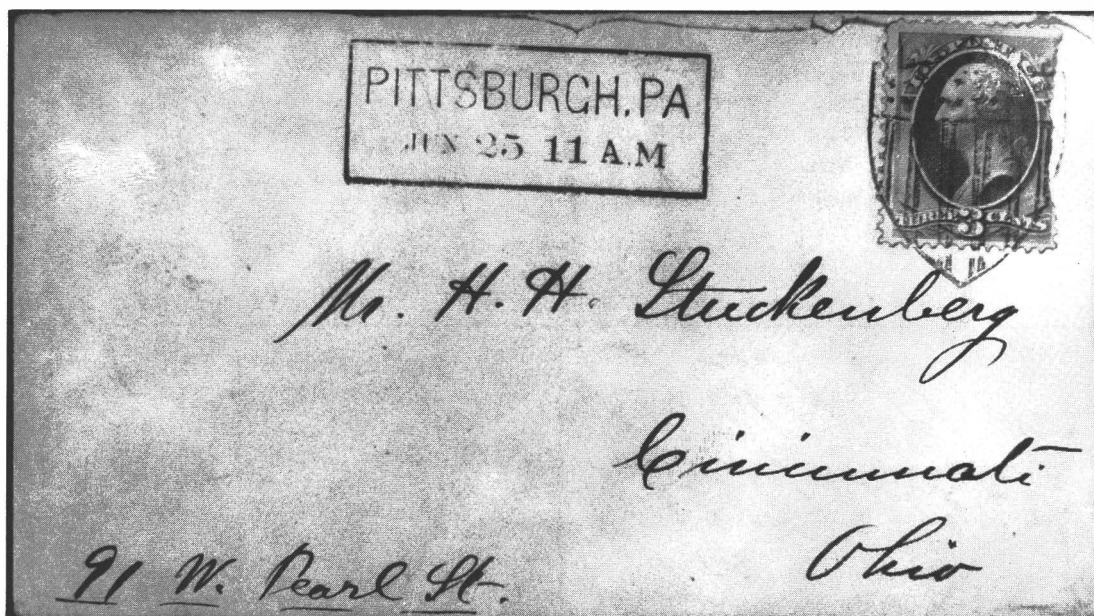 PITTSBURGH, PA
JUN 25 11 A.M
U.S. POSTAGE
THREE 3 CENTS
Mr. H. H. Stuckenberg
Cincinnati
Ohio
91 W. Pearl St.